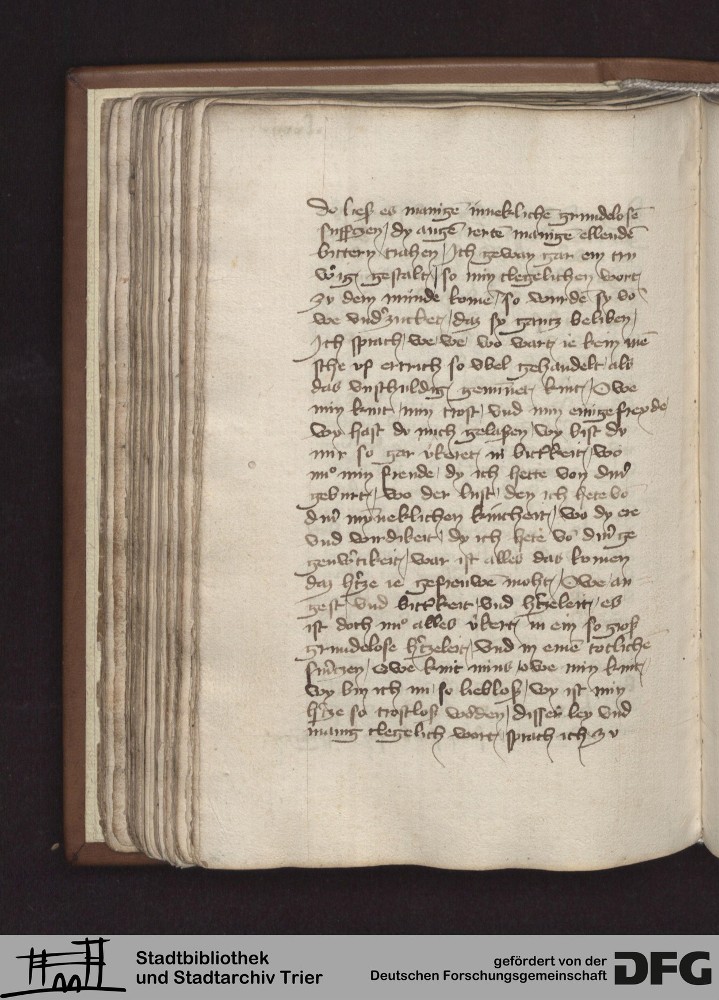 Do ließ es manige inneklichē grundelosē
suffczen / dy augē rerte manige ellendē
bittern trahen / Ich gewan gar ein tru
rig gestalt / so min clegelichen wort
zu dem munde kome / so wurdē sy vō
we vnd͛zucket / daz sy gantz beliben /
Ich sprach / we we / wo wart ie kein mē
sche vf ertrich so vbel gehandelt / als
das vnschuldig / gemint͛ kint / Owe
min kint / min trost / vnd min einige freyde
wy hast du mich gelaßen / wy bist du
mir so gar v͛keret in bitt͛keit / wo
nu min freude / dy ich hette von din͛
geburt / wo der lust / den ich hete vō
din͛ myneklichen kintheit / wo dy ere
vnd wirdikeit / dy ich hete vō din͛ ge
genw͛tikeit / war ist alles das komen
daz h͛tze ie gefreuwe moht / Owe an
gest / vnd bitt͛keit / vnd h͛tzeleit / es
ist doch nu alles v͛kert in ein so groß
grundelose h͛tzeleit / vnd in eine totliche
sm͛tzen / Owe kint mins owe min kint /
wy bin ich nu so liebloß / wy ist min
h͛tze so trostloß worden / disser ley vnd
manig clegelich wort / sprach ich zu
Stadtbibliothek
und Stadtarchiv Trier
gefördert von der
Deutschen Forschungsgemeinschaft
DFG